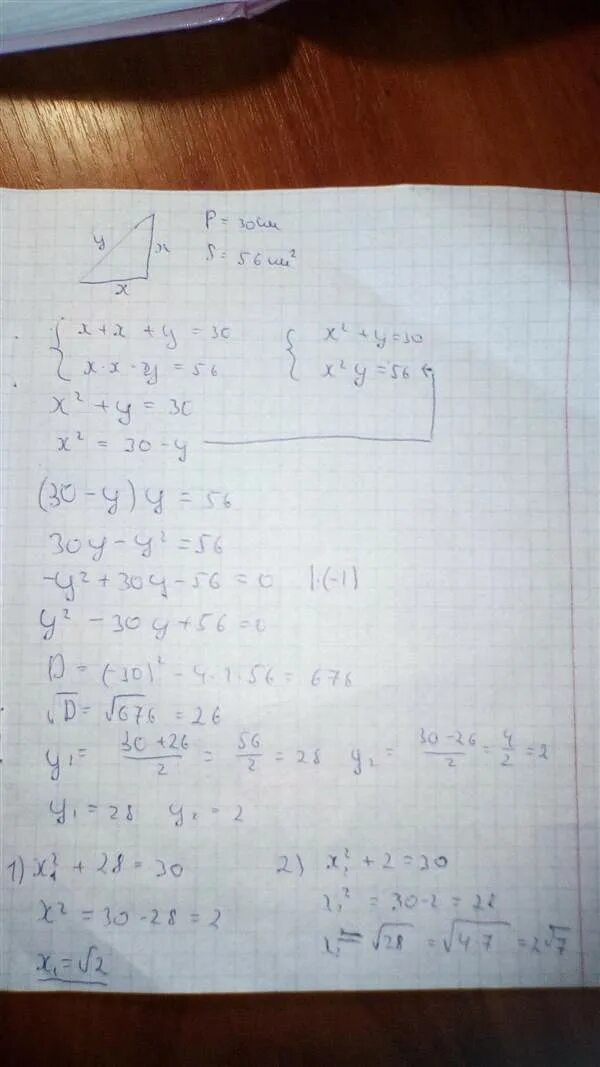 P = 30 см
y x
S = 56 см²
x
{ x + x + y = 30 { x² + y = 30
{ x · x · y = 56 { x² y = 56
x² + y = 30
x² = 30 - y
(30 - y) y = 56
30y - y² = 56
-y² + 30y - 56 = 0 | · (-1)
y² - 30y + 56 = 0
D = (-30)² - 4 · 1 · 56 = 676
√D = √676 = 26
y₁ = (30 + 26)/2 = 56/2 = 28 y₂ = (30 - 26)/2 = 4/2 = 2
y₁ = 28 y₂ = 2
1) x₁² + 28 = 30 2) x₁² + 2 = 30
x² = 30 - 28 = 2 x₁² = 30 - 2 = 28
x₁ = √2 x₁ = √28 = √4·7 = 2√7